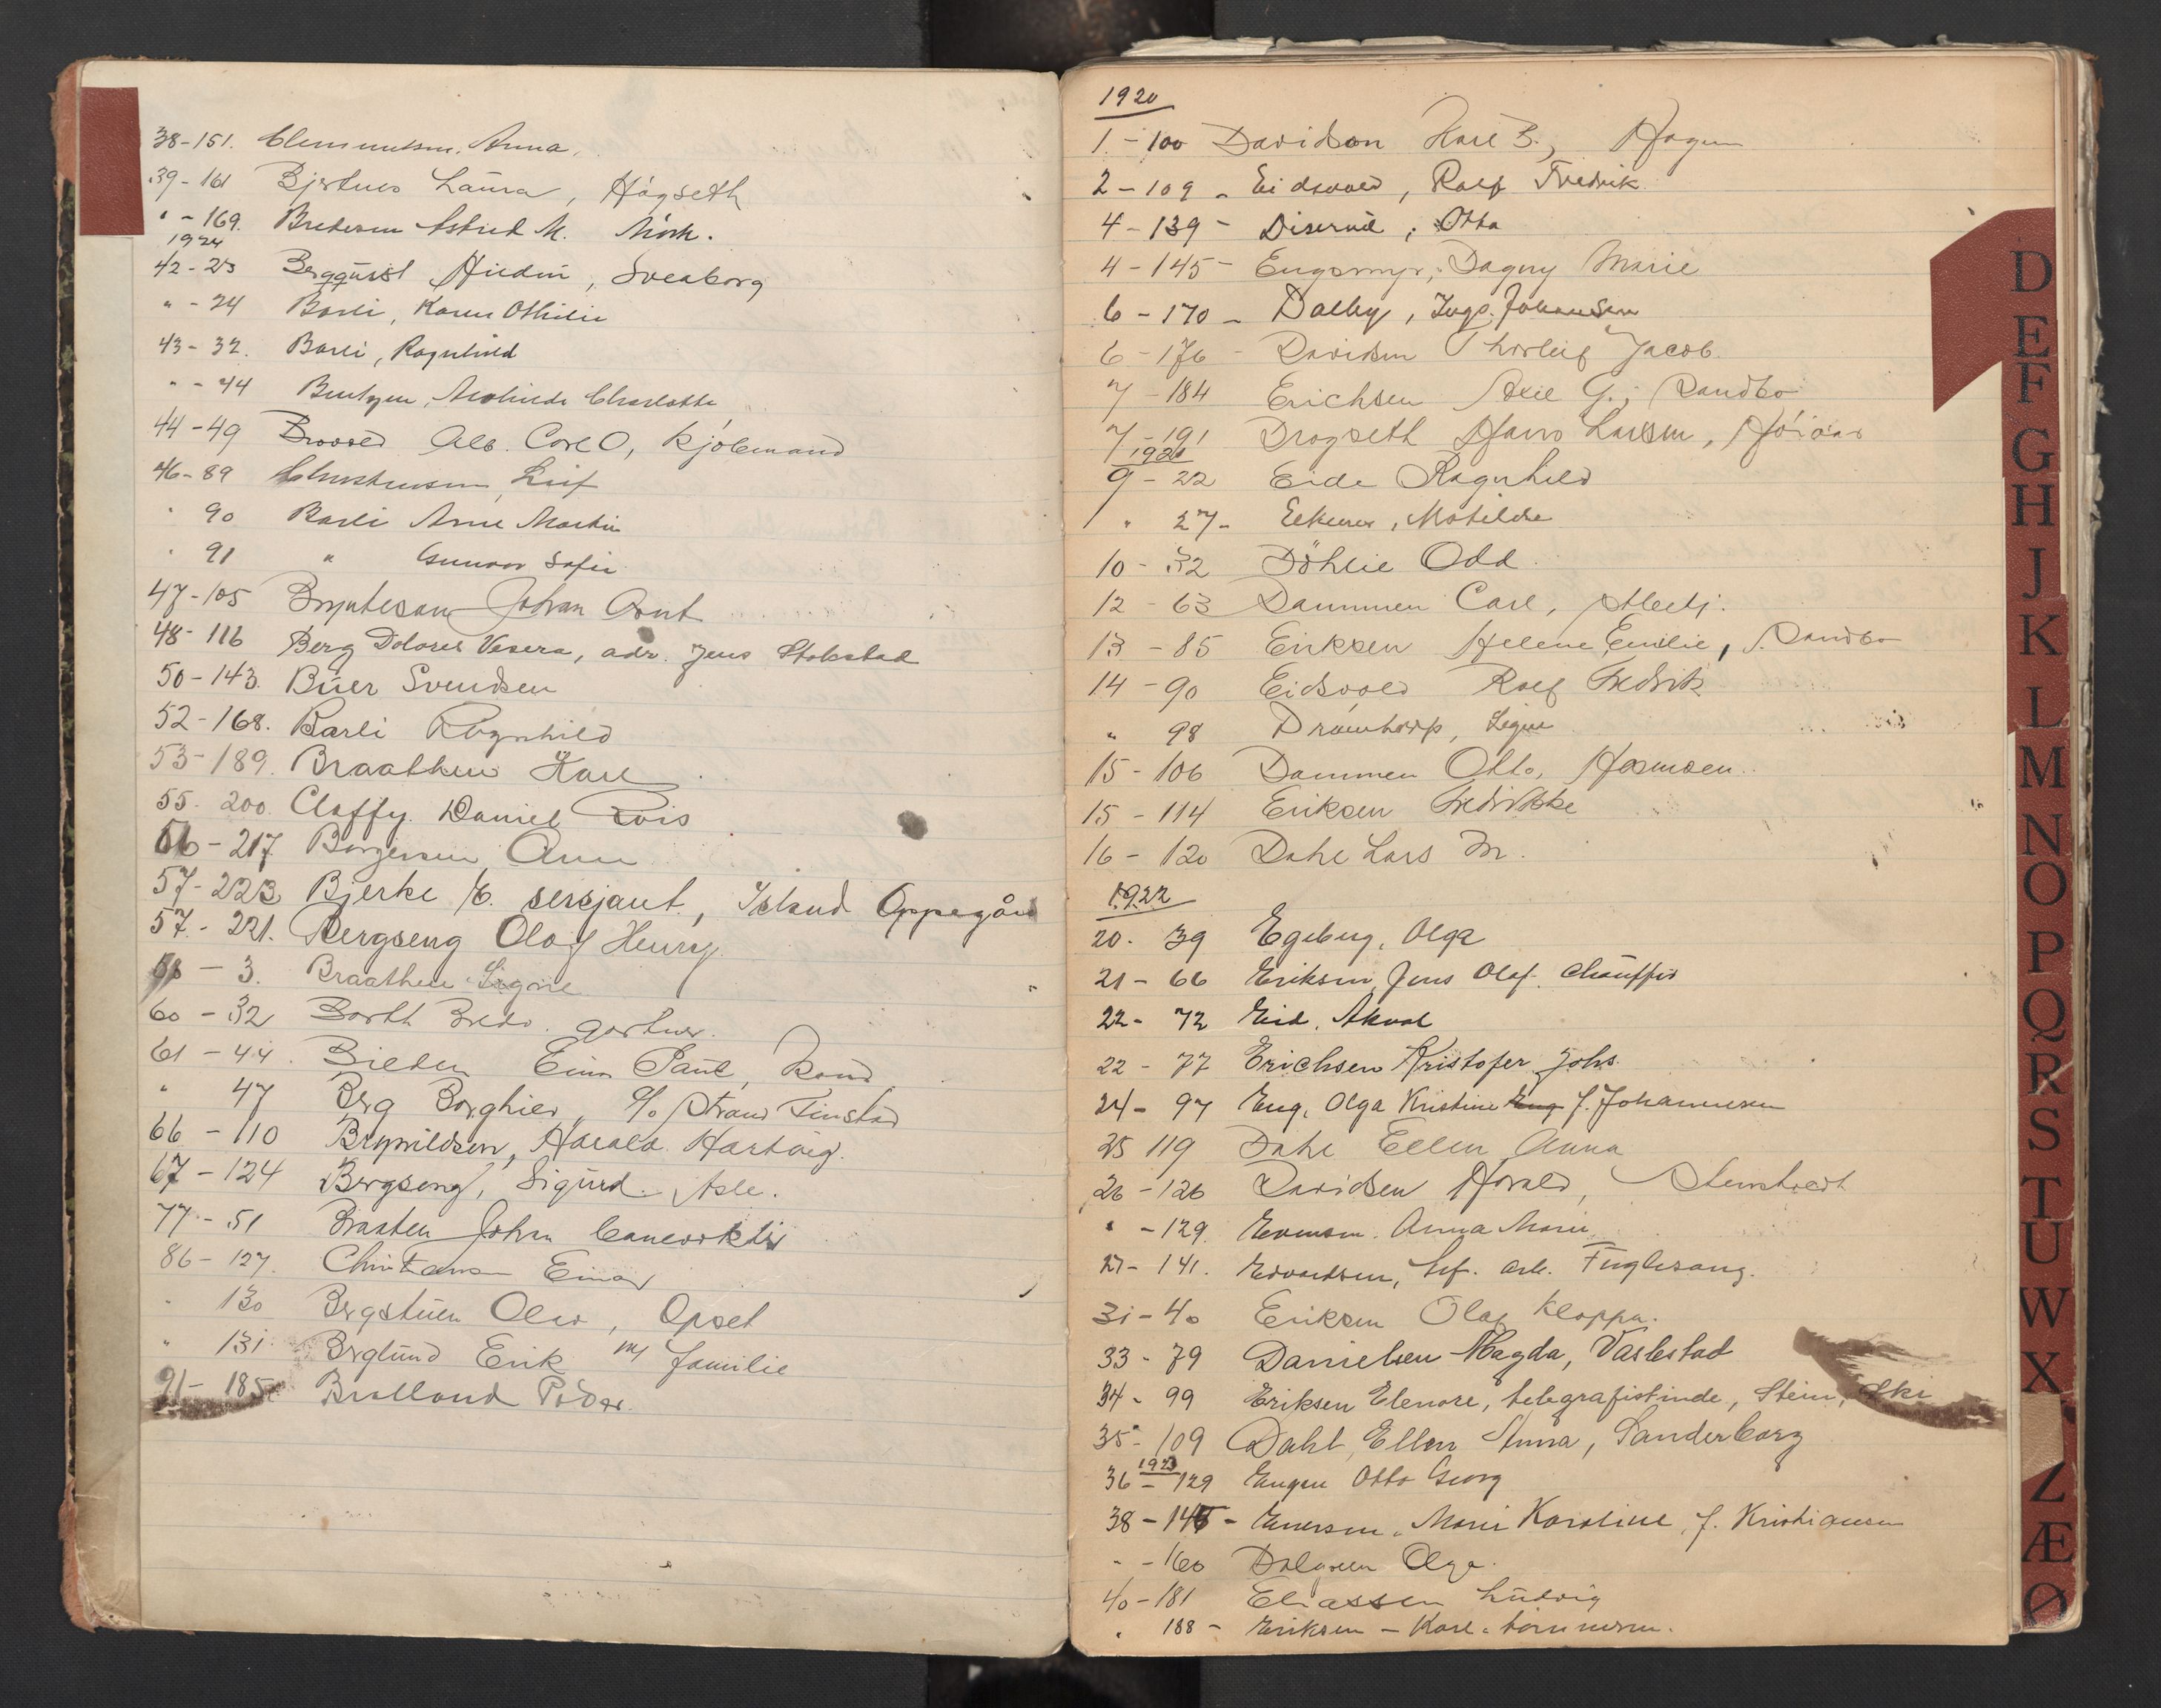 38-151. Clemmetsen, Anna.
39-161 Bjertnes Laura, Hágseth
" - 169. Bredesen Astrid M. Mörk.
1924
42-23 Bergqvist Hildur, Sveaborg
" - 24 Barli, Karen Othilie
43-32. Barli, Ragnhild
" - 44 Bentzen, Charlotte
44-49 Alb. Carl O, kjöbmand
46-89 Christensen, Leif
" 90 Barli Arne Martin
" 91 " Gunvor Sofie
47-105 Bryntesen Johan Arnt
48-116 Berg Dolores Vesera, adr. Jens Stokstad
50-143. Büer Svendsen
52-168. Barli Ragnhild
53-189. Braathen Karl
55-200. Claffy Daniel Rois
56-217 Borgersen Arne
57-223 Bjerke K. sersjant, Island Oppegård
57-221. Bergseng Olaf Henry
58-3. Braathen Signe
60-32 Barth Bredo. gartner.
61-44. Einar Paul,
" 47 Berg Borghild, c/o Strand Finstad
66-110 Brynildsen, Harald Hartvig.
67-124 Bergseng, Sigurd Asle.
77-51 Braaten Johan
86-127. Christiansen Einar
" 130 Bergstuen Olav, Opset
" 131. Berglund Erik m/ familie
91-185 Bratland Peder.
1920
1-100 Davidson Karl B., Hagen
2-109 - Eidsvold, Rolf Fredrik
4-139 - Diserud, Otto
4-145 - Engsmyr, Dagny Marie
6-170 - Dalby, Inga Johansen
6-176 - Davidsen Thorleif Jacob.
7-184 Erichsen Axel G., Sandbo
7-191 Dragseth Hans Larsen,
1921
9-22 Eide Ragnhild
" 27- Matilde
10-32 Döhlie Odd.
12-63 Dammen Carl,
13-85 Eriksen Helene Emilie, Sandbo
14-90 Eidsvold Rolf Fredrik
" 98 Drömtorp, Signe
15-106 Dammen Otto, Hermosen.
15-114 Eriksen Fredrikke
16-120 Dahl Lars M.
1922
20. 39 Egeberg, Olga
21-66 Eriksen, Jens Olaf. Chauffør
22-72 Eid, Aksel
22-77 Erichsen Kristofer Johs.
24-97 Eng, Olga Kristine Eng f. Johannesen
25 119 Dahl Ellen Anna
26-126 Davidsen Harald,
" - 129. Evensen Anna Marie
27-141. Edvardsen, Fuglesang.
31-40 Eriksen Olaf Kloppa.
33-79 Danielsen Magda, Vaslestad
34-99 Eriksen Elenore, telegrafistinde, Stein, Ski
35-109 Dahl, Ellen Anna, Sanderborg
1923
36-129 Engen Otto Georg
38-145 - Enersen, Marie Karoline, f. Kristiansen
" - 160 Dalgren Olga.
40-181 Eliassen Ludvig
" 188 - Eriksen - Karl
D
E
F
G
H
J
K
L
M
N
O
P
Q
R
S
T
U
W
X
Z
Æ
Ø